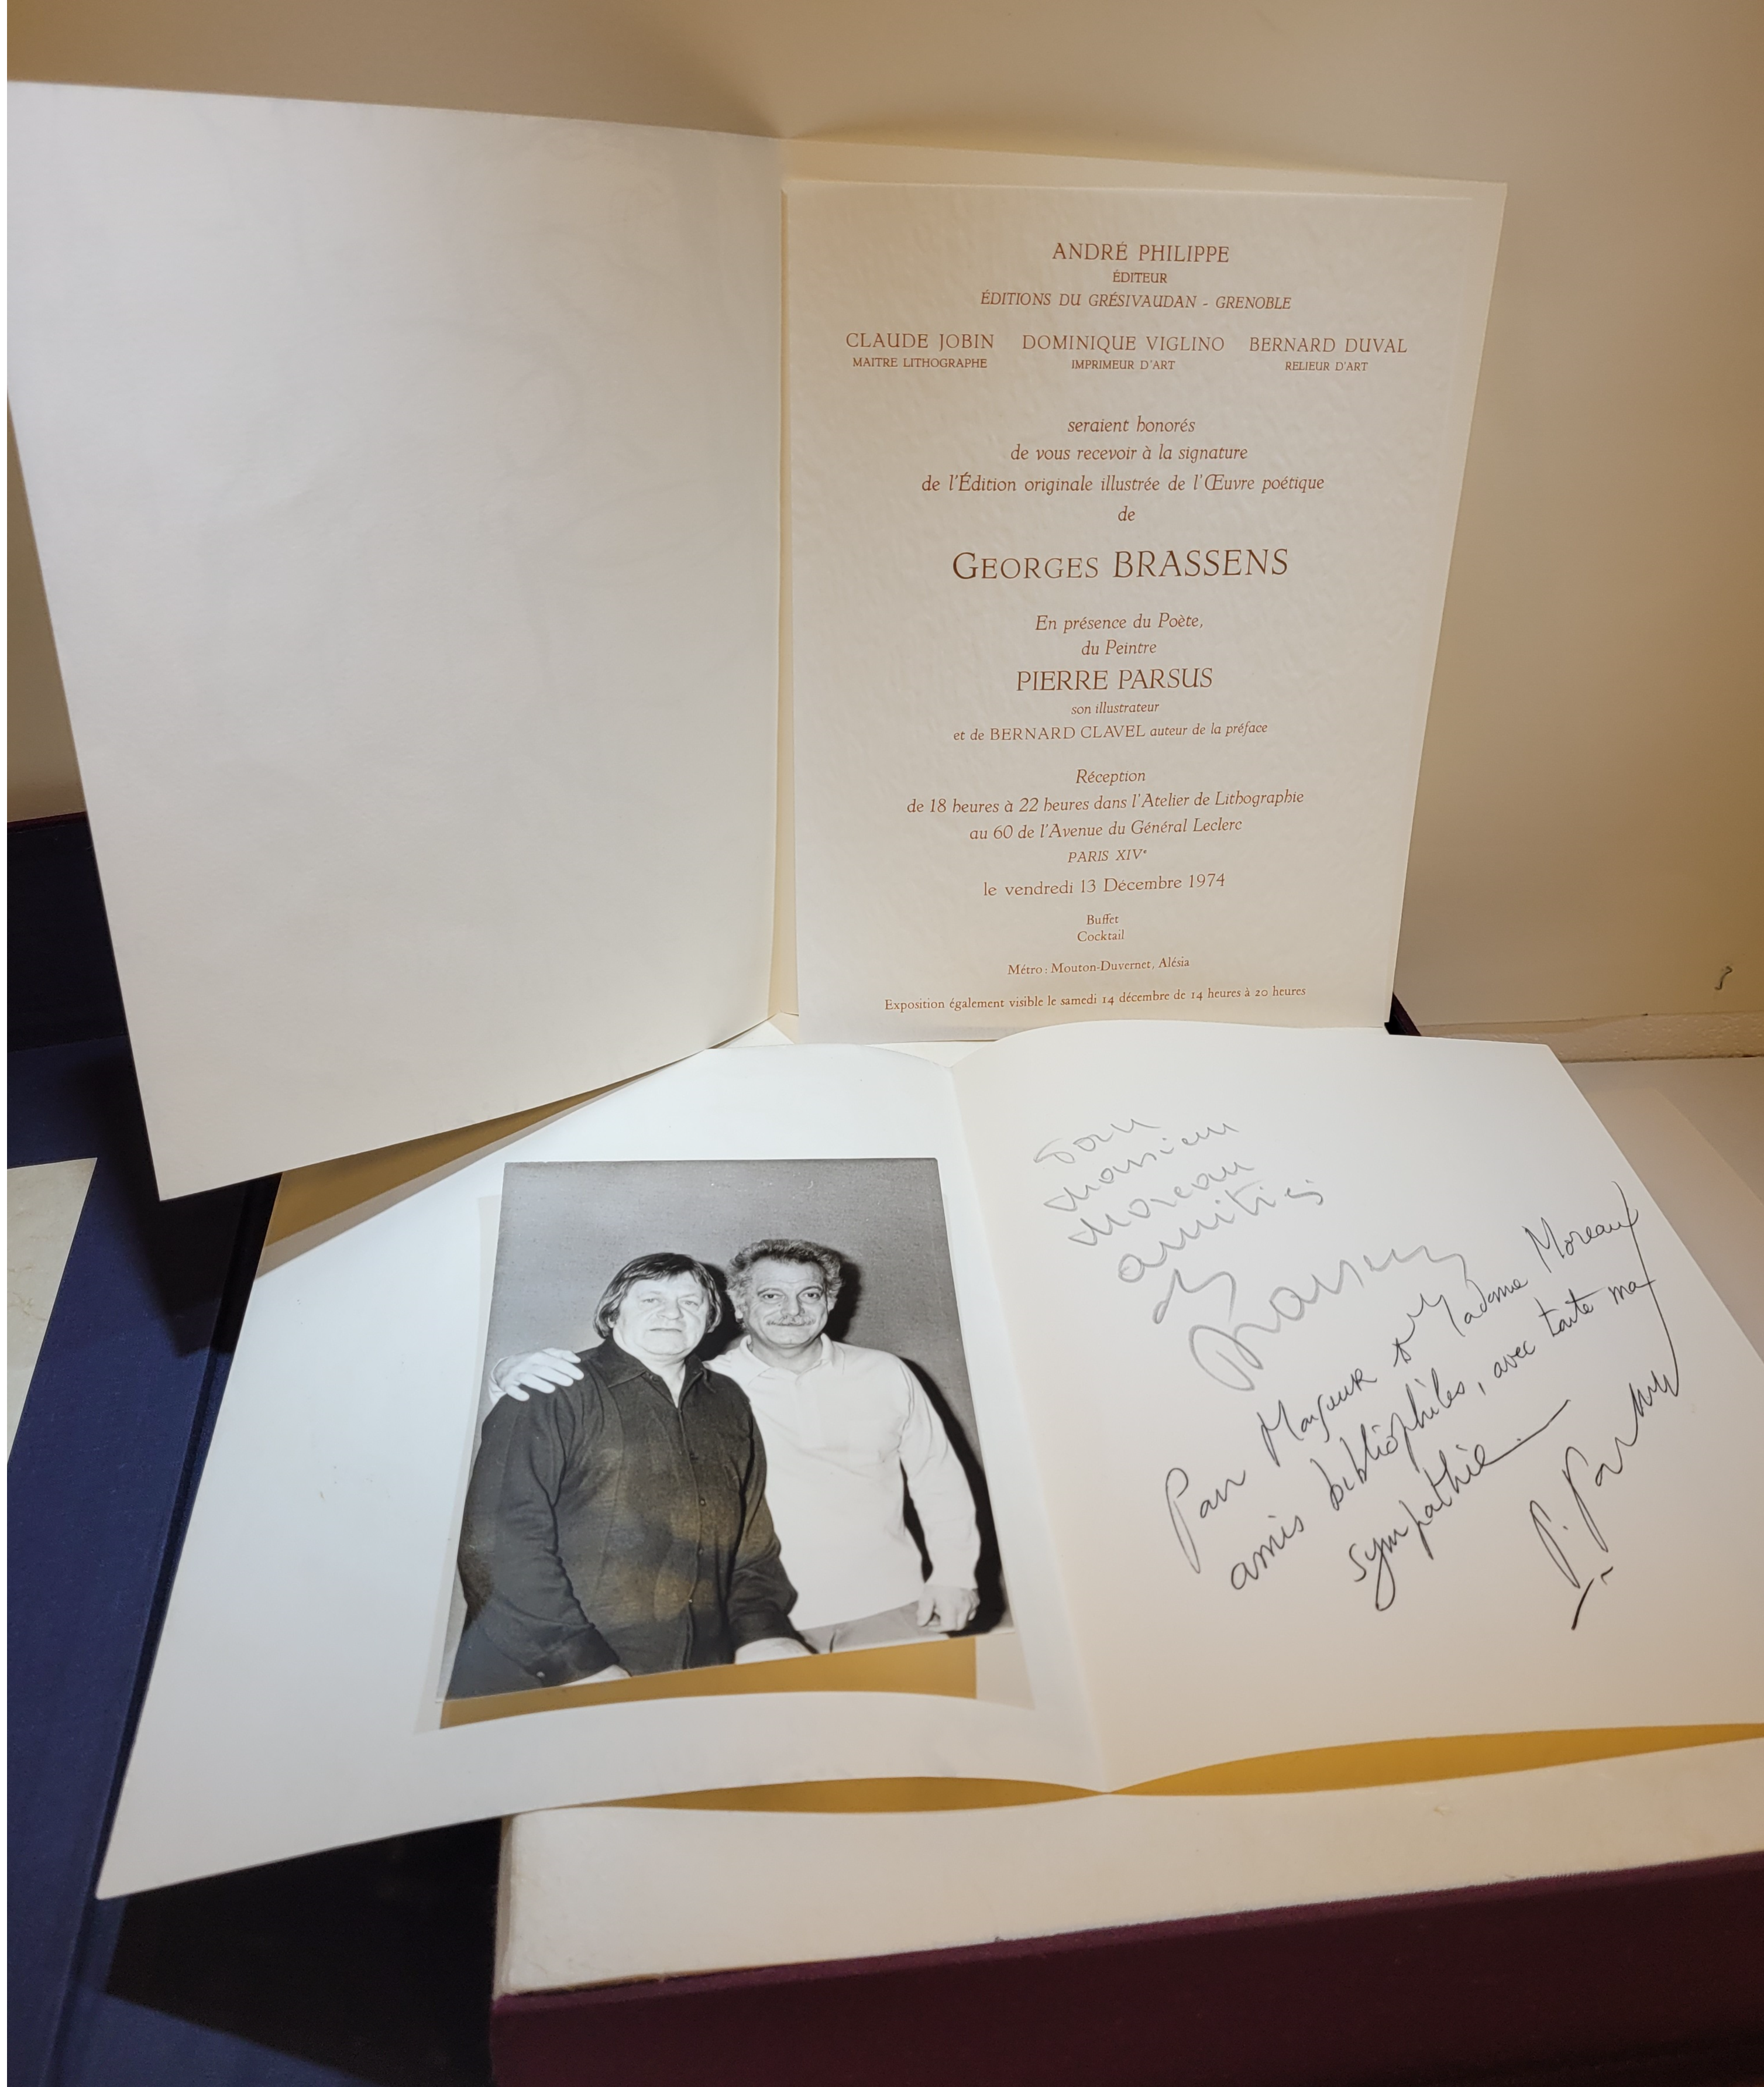 ANDRÉ PHILIPPE
ÉDITEUR
ÉDITIONS DU GRÉSIVAUDAN - GRENOBLE
CLAUDE JOBIN DOMINIQUE VIGLINO BERNARD DUVAL
MAITRE LITHOGRAPHE IMPRIMEUR D'ART RELIEUR D'ART
seraient honorés
de vous recevoir à la signature
de l'Édition originale illustrée de l'Œuvre poétique
de
GEORGES BRASSENS
En présence du Poète,
du Peintre
PIERRE PARSUS
son illustrateur
et de BERNARD CLAVEL auteur de la préface
Réception
de 18 heures à 22 heures dans l'Atelier de Lithographie
au 60 de l'Avenue du Général Leclerc
PARIS XIVe
le vendredi 13 Décembre 1974
Buffet
Cocktail
Métro : Mouton-Duvernet, Alésia
Exposition également visible le samedi 14 décembre de 14 heures à 20 heures
Pour
Monsieur
Moreau
amitiés
de
Brassens
Pour Monsieur et Madame Moreau
amis bibliophiles, avec toute ma
sympathie.
P. Parsus